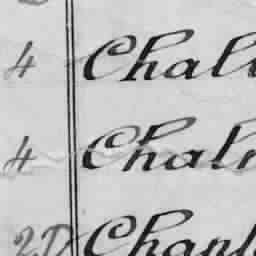 4 Chal
4 Chal
2D Chan